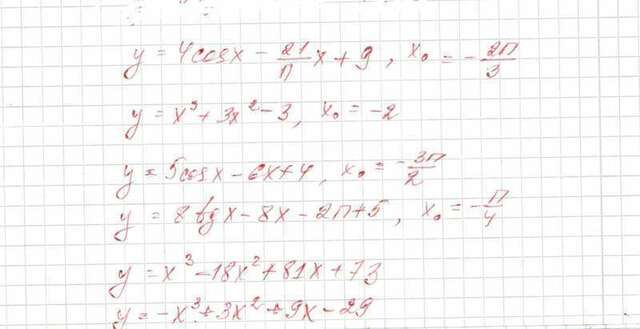 y = 4cosx - 21/п x + 9, x₀ = - 2п/3
y = x³ + 3x² - 3, x₀ = -2
y = 5cosx - 6x + 4, x₀ = - 3п/2
y = 8tgx - 8x - 2п + 5, x₀ = - п/4
y = x³ - 18x² + 81x + 73
y = -x³ + 3x² + 9x - 29